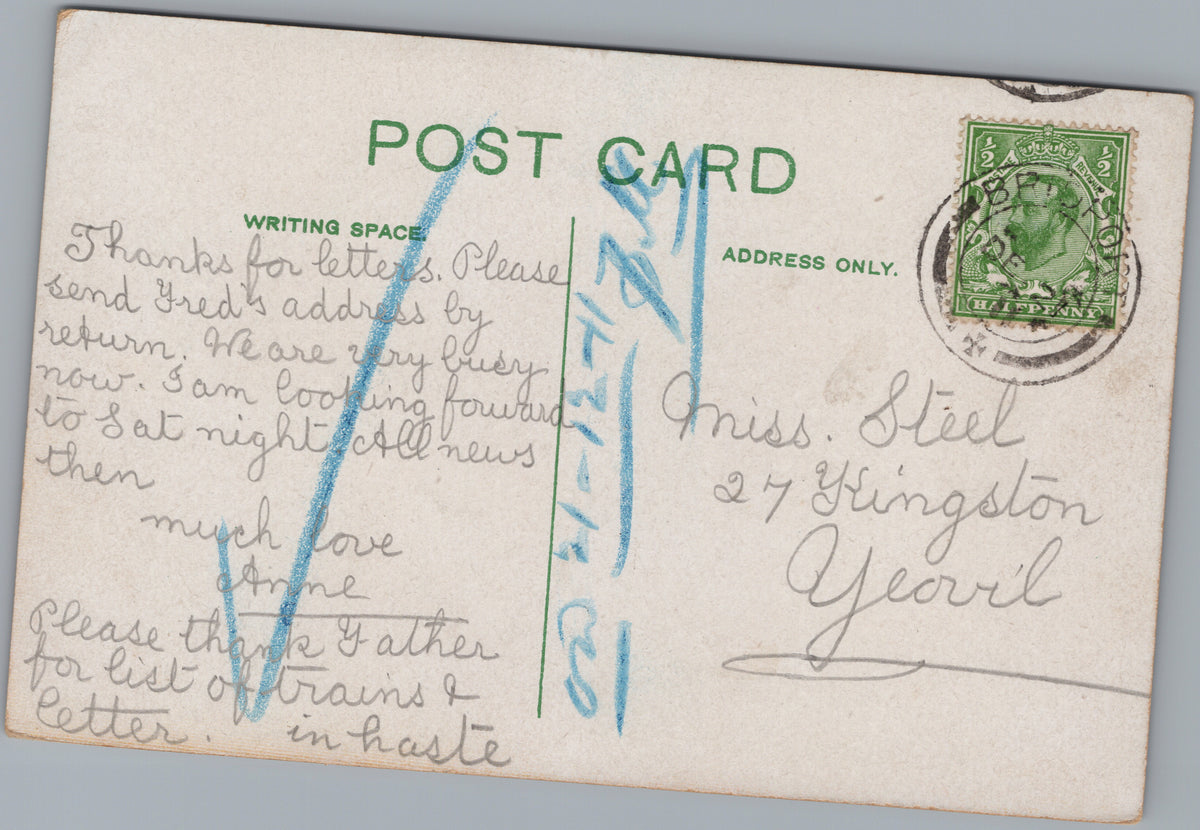 POST CARD
WRITING SPACE.
ADDRESS ONLY.
Thanks for letters. Please
send Fred's address by
return. We are very busy
now. I am looking forward
to Sat night. All news
then
much love
Anne
Please thank Father
for list of trains &
letter. in haste
Miss. Steel
27 Kingston
Yeovil
21-12-17
½ ½
POSTAGE REVENUE
HALFPENNY
BRIDPORT
DE